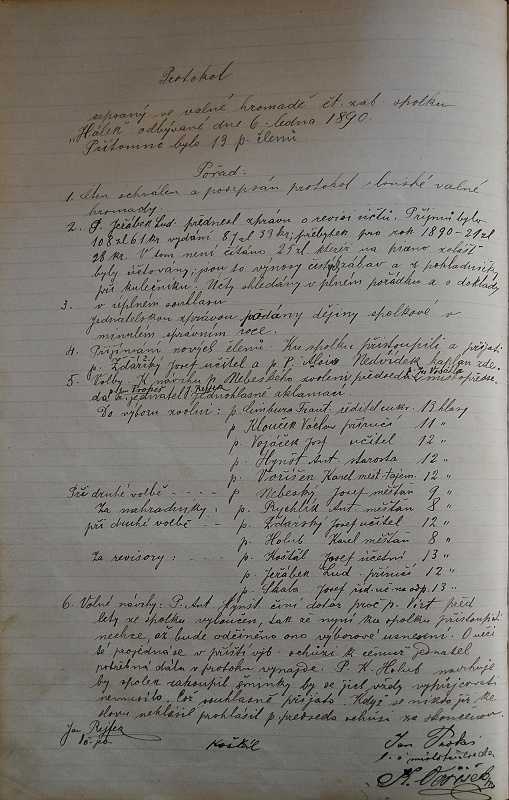 Protokol
sepsaný ve valné hromadě čt. zab. spolku
„Hálek" odbývané dne 6. ledna 1890.
Přítomno bylo 13 p. členů.
Pořad:
1. Čten schválen a podepsán protokol loňské valné
hromady.
2. P. Jeřábek Lud. přednesl zprávu o revisi účtů. Příjmů bylo
108 zl 61 kr vydání 87 zl 33 kr; přebytek pro rok 1890 - 21 zl
28 kr. V tom není čítáno 25 zl které na
byly účtovány; jsou to výnosy zábav a z pokladničky
při kulečníku. Účty shledány v úplném pořádku a s doklady
v úplném souhlasu
3. Jednatelskou zprávou podány dějiny spolkové v
minulém správním roce.
4. Přijímání nových členů. Ku spolku přistoupili a přijati
p. Žďárský Josef učitel a p. P. Alois Nedvídek kaplan zde.
5. Volby. K návrhu p. Nebeského zvoleni předseda p. místopředse-
da a jednatel jednohlasně aklamací.
Do výboru zvoleni: p. Cimbura Frant. ředitel cukr. 13 hlasy
p. Klouček Václav příručí 11 "
p. Vojáček Josef učitel 12 "
p. Hynšt Ant. starosta 12 "
p. Voříšek Karel měst. tajem. 12 "
Při druhé volbě - - - - p. Nebeský Josef měšťan 9 "
Za náhradníky: p. Rychlík Ant. měšťan 8 "
při druhé volbě - - - p. Žďárský Josef učitel 12 "
p. Holub Karel měšťan 8 "
Za revisory: - - p. Košťál Josef účetní 13 "
p. Jeřábek Lud. příručí 12 "
p. Skala Josef 13 "
6. Volné návrhy: P. Ant. Hynšt činí dotaz proč p. před
lety ze spolku vyloučen, tak že nyní ku spolku přistoupiti
nechce, až bude odčiněno ono výborové usnesení. O věci
té pojednáse v příští výb. schůzi k čemuž jednatel
potřebná data v protoku vynajde. P. K. Holub navrhuje
by spolek zakoupil šminky by se jich vždy vypůjčovati
nemusilo. Což souhlasně přijato. Když se nikdo již ke
slovu nehlásil prohlásil p. předseda schůzi za skončenou.
Jan Rejfek
Košťál
Jan
K. Voříšek